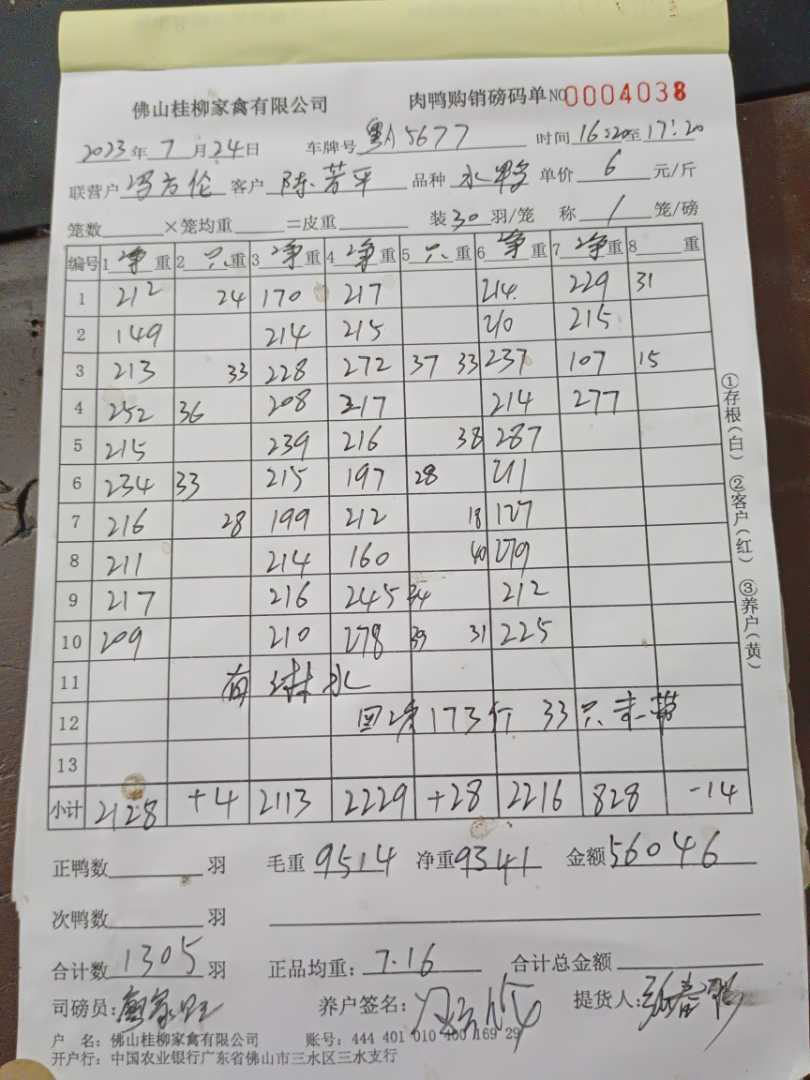 佛山桂柳家禽有限公司 肉鸭购销磅码单 NO 0004038
2023年 7 月 24 日 车牌号 粤A5677 时间 16:20至17:20
联营户 冯方伦 客户 陈芳平 品种 水鸭 单价 6 元/斤
笼数 ×笼均重 =皮重 装 30 羽/笼 称 1 笼/磅
编号 1 净 重 2 只 重 3 净 重 4 净 重 5 只 重 6 净 重 7 净 重 8 重
1 212 24 170 217 214 229 31
2 149 214 215 210 215
3 213 33 228 272 37 33 237 107 15
4 252 36 208 217 214 277
5 215 239 216 38 287
6 234 33 215 197 28 211
7 216 28 199 212 18 127
8 211 214 160 40 279
9 217 216 245 34 212
10 209 210 278 39 31 225
11 有 淋水
12 173斤 33只
13
小计 2128 +4 2113 2229 +28 2216 828 -14
①存根(白) ②客户(红) ③养户(黄)
正鸭数 羽 毛重 9514 净重 9341 金额 56046
次鸭数 羽
合计数 1305 羽 正品均重: 7.16 合计总金额
司磅员: 养户签名: 提货人:
户 名: 佛山桂柳家禽有限公司 账号: 444 401 010 400 169 29
开户行: 中国农业银行广东省佛山市三水区三水支行